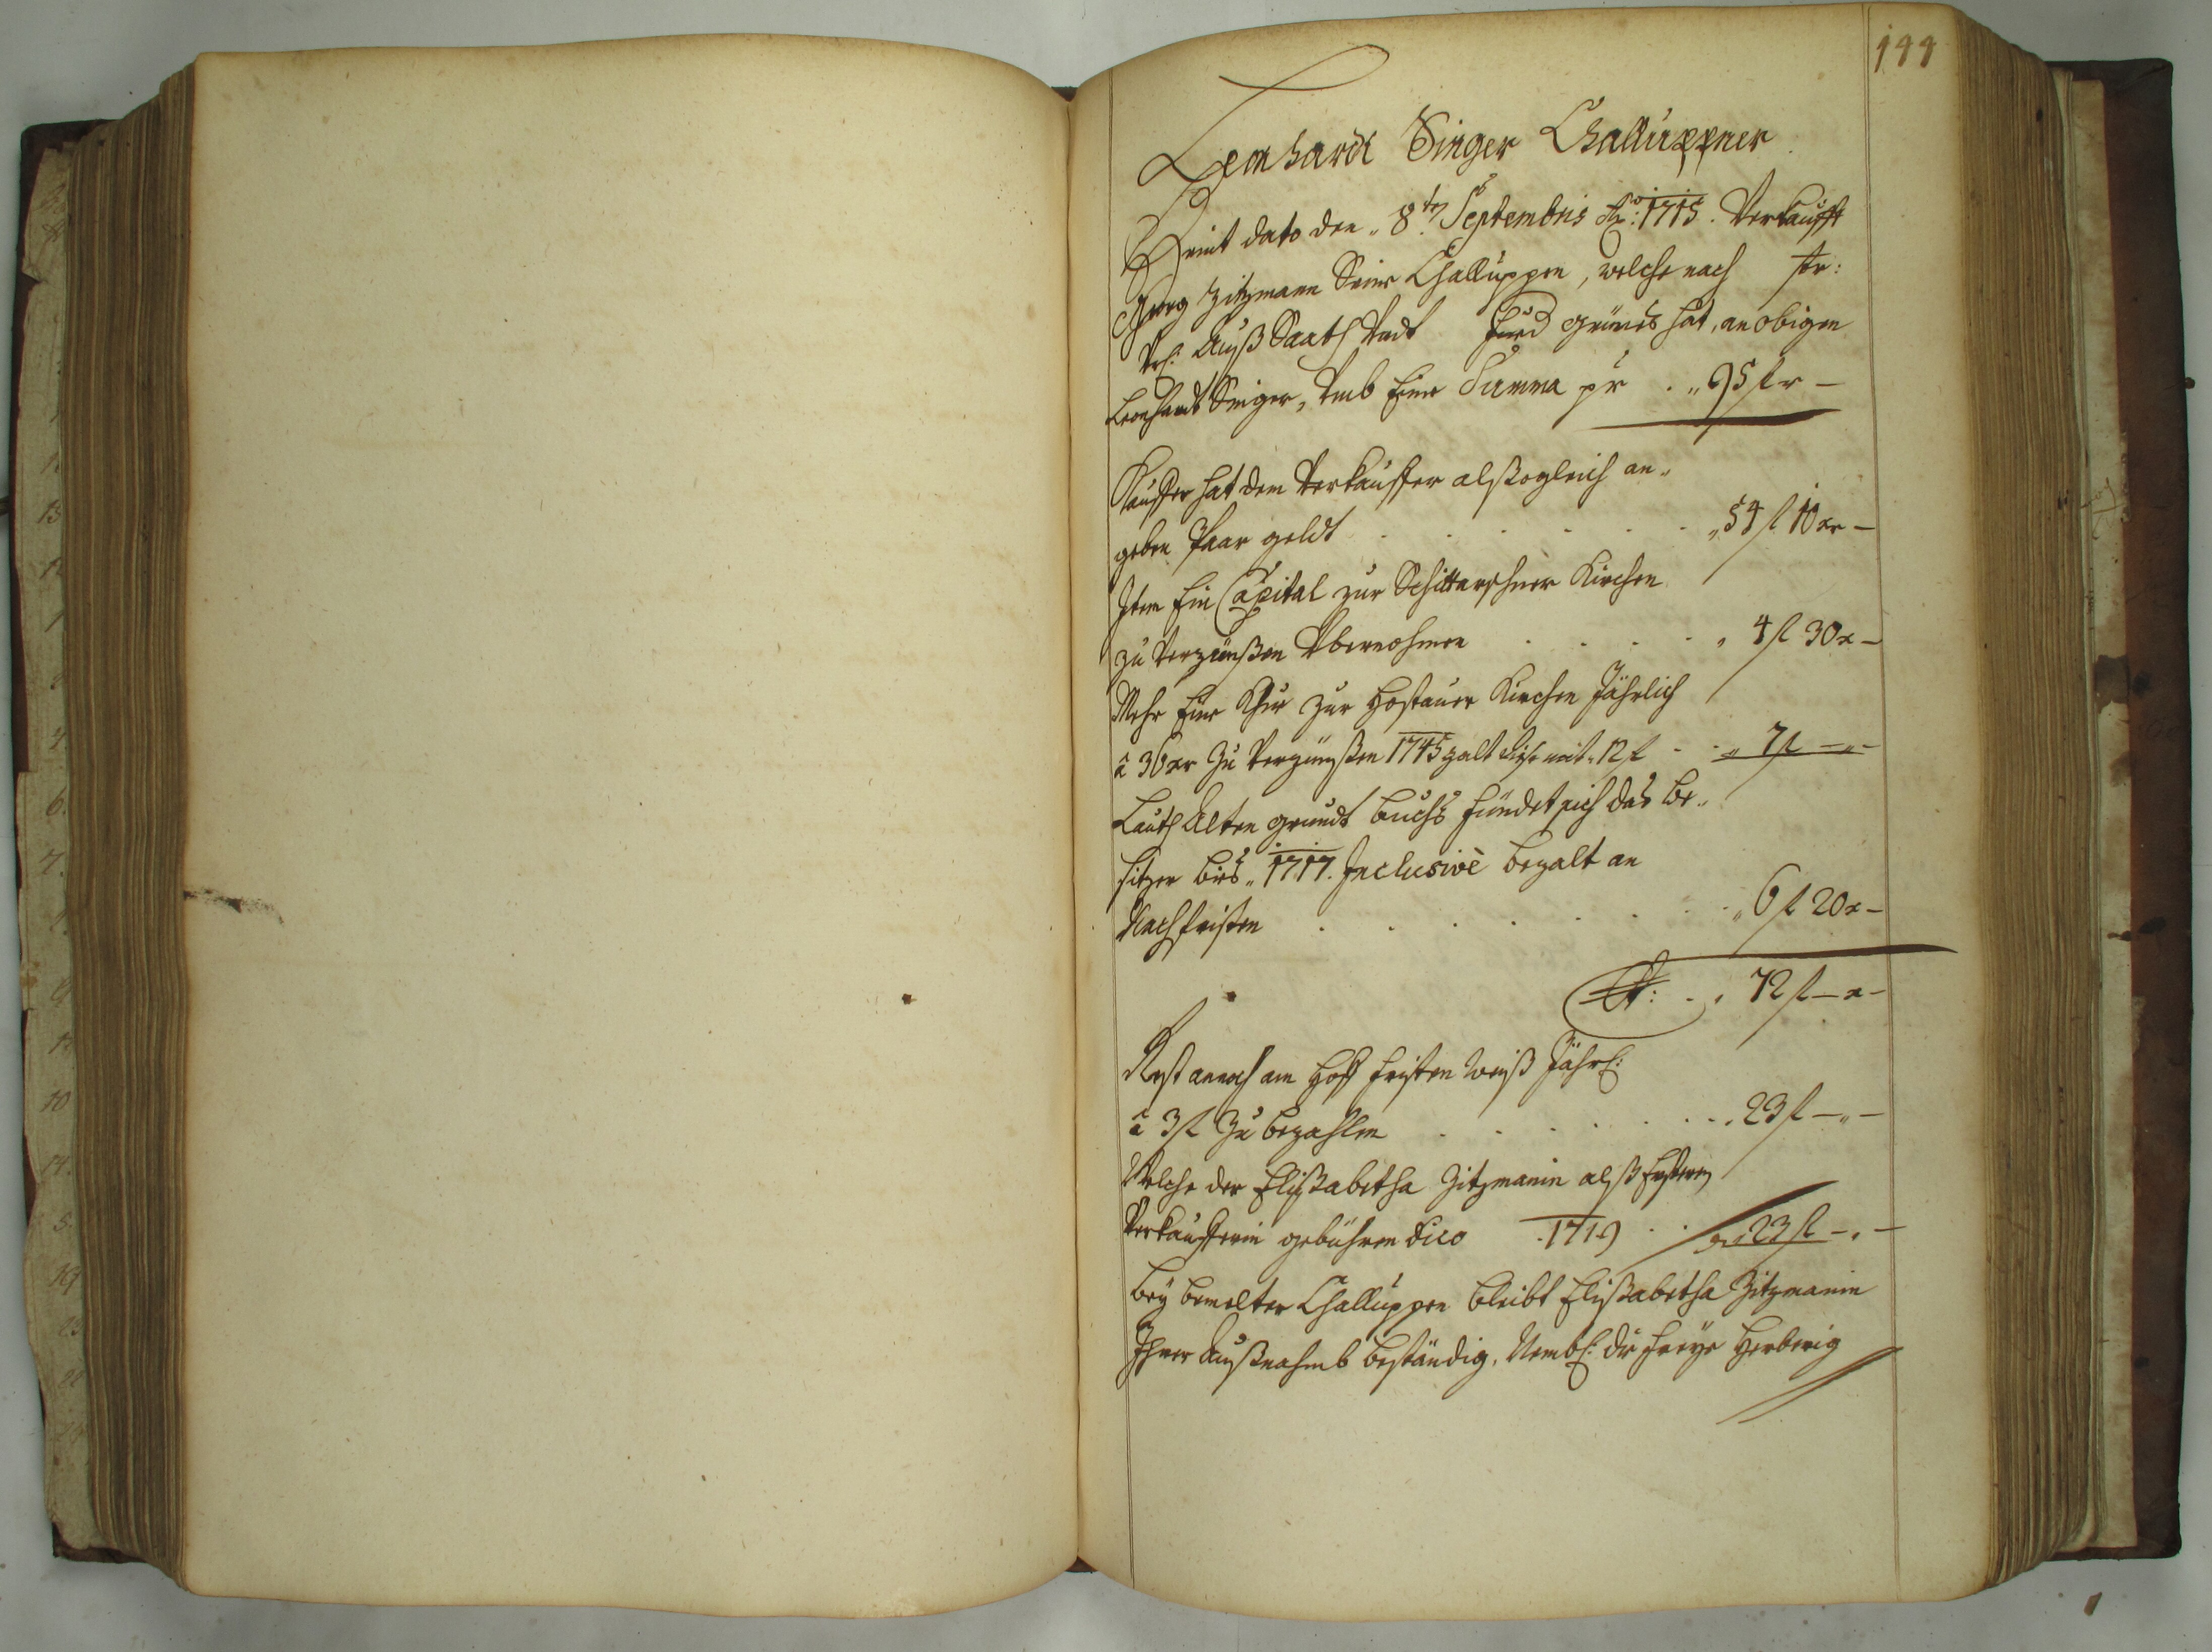 144
Leonhardt Singer Challuppner
Heint dato den 8ten Septembris Ao: 1715. Verkaufft
Georg Zitzmann Seine Challuppen, welche nach str:
Auß Saath Undt grundts hat, an obigen
Leonhardt Singer, Umb Eine Summa pr „ 95 fl x —
Kauffer hat dem Verkauffer alßogleich an„
geben Paar geldt „ 54 fl 10 xr —
Item Ein Capital zur Schittarschner Kirchen
zu Verzünßen Übernohmen „ 4 fl 30 x —
Mehr Eine Khue zur Hostauer Kirchen Jährlich
â 36 xr zu Verzünßen 1745 zalt diese mit 12 f „ 7 fl — „ —
Lauth Alten grundt buchs fündet sich das Be„
sitzer biß „ 1717. Inclusivè bezalt an
Nachfristen „ 6 fl 20 x —
St: „ 72 fl — x —
Rest annoch am Hoff fristen Weiß Jährl:
â 3 fl zu bezahlen „ 23 fl — „ —
Welche der Elißabetha Zitzmanin alß Ersteren
Verkaufferin gebühren dico 1719 „ 23 fl — „ —
Bey bemelter Challuppen bleibt Elißabetha Zitzmanin
Ihrer Außnahmb beständig, Nembl: die freye Herberig